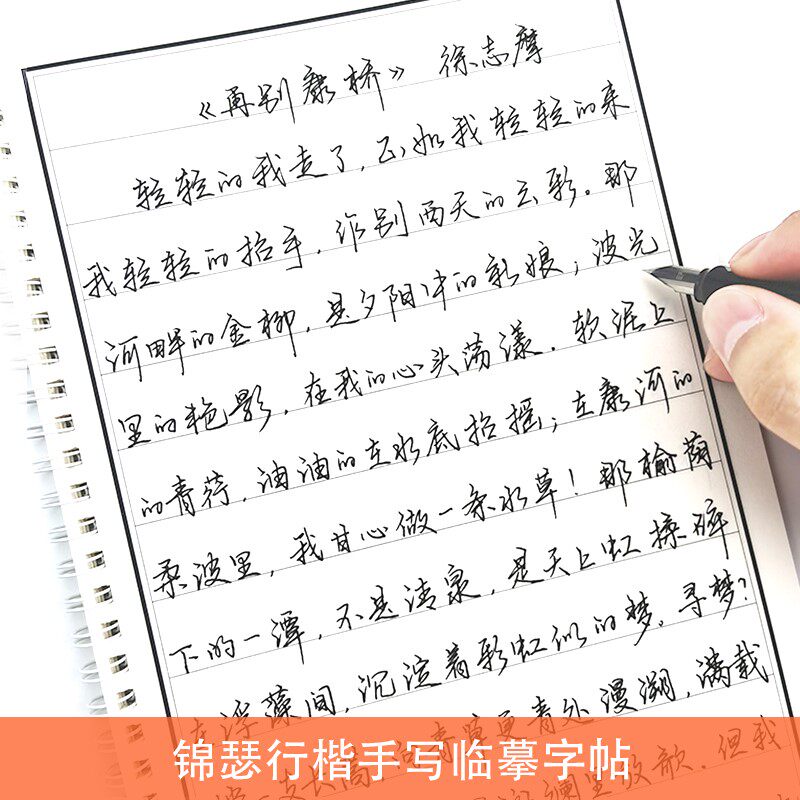 《再别康桥》 徐志摩
轻轻的我走了，正如我轻轻的来
我轻轻的招手，作别西天的云彩。那
河畔的金柳，是夕阳中的新娘；波光
里的艳影，在我的心头荡漾。软泥上
的青荇，油油的在水底招摇；在康河的
柔波里，我甘心做一条水草！那榆荫
下的一潭，不是清泉，是天上虹揉碎
在浮藻间，沉淀着彩虹似的梦。寻梦？
一支长篙，向青草更青处漫溯，满载
斓里放歌。但我
锦瑟行楷手写临摹字帖